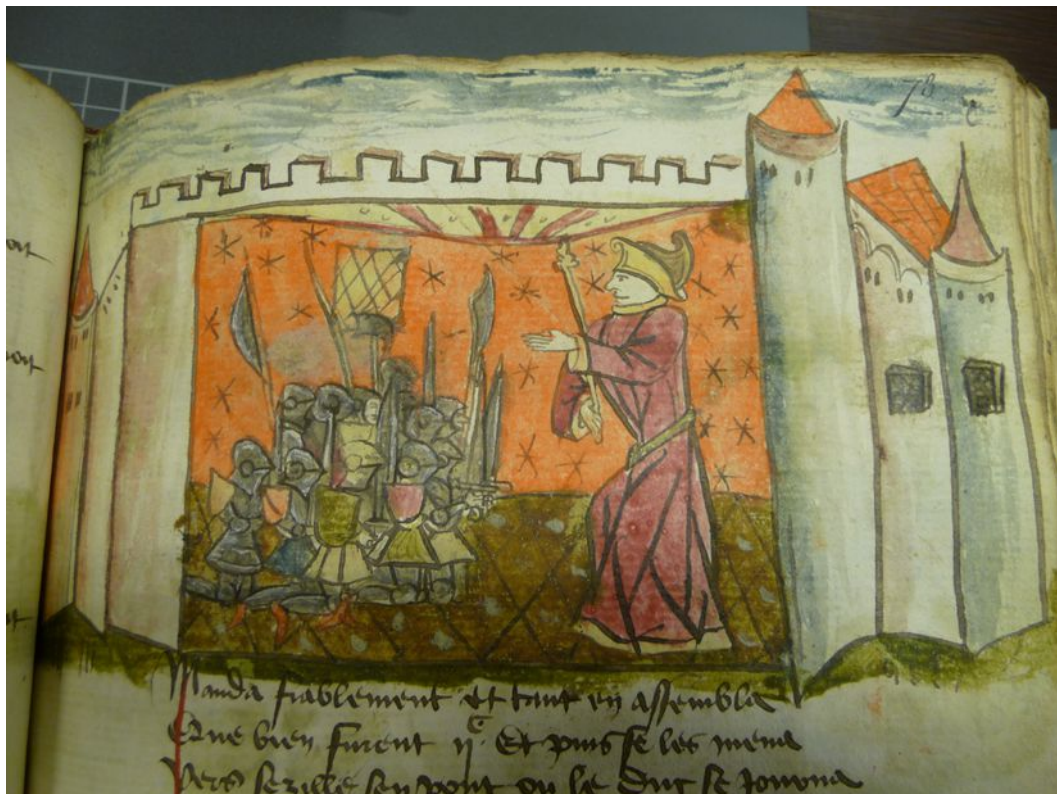 78
Manda fiablement Et tant en assembla
Que bien furent ii c. Et puis se les mena
Vers sezille sen vont ou le duc se